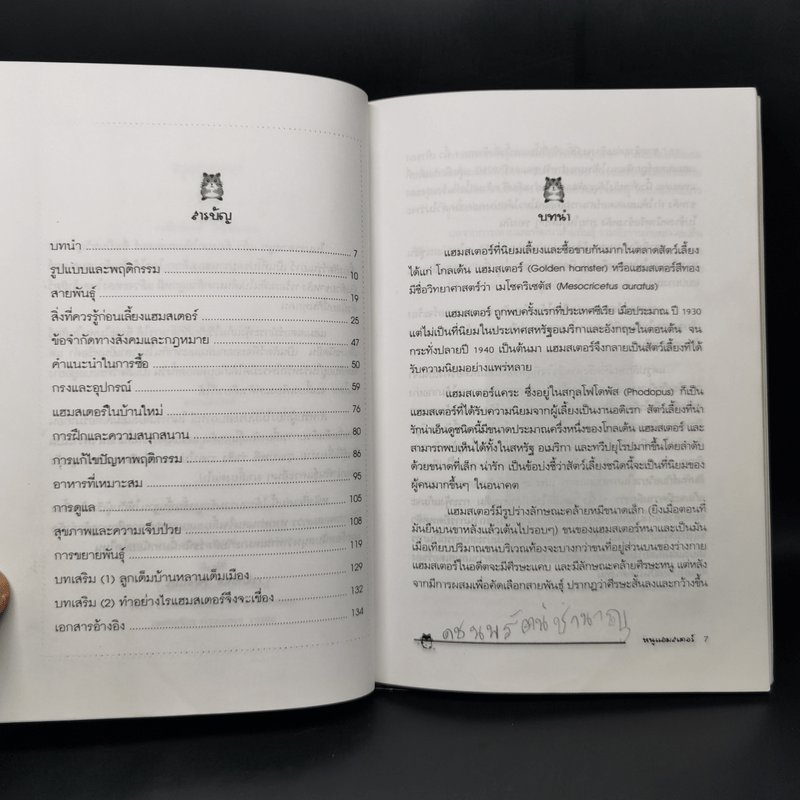 สารบัญ
บทนำ 7
รูปแบบและพฤติกรรม 10
สายพันธุ์ 19
สิ่งที่ควรรู้ก่อนเลี้ยงแฮมสเตอร์ 25
ข้อจำกัดทางสังคมและกฎหมาย 47
คำแนะนำในการซื้อ 50
กรงและอุปกรณ์ 59
แฮมสเตอร์ในบ้านใหม่ 76
การฝึกและความสนุกสนาน 80
การแก้ไขปัญหาพฤติกรรม 86
อาหารที่เหมาะสม 95
การดูแล 105
สุขภาพและความเจ็บป่วย 108
การขยายพันธุ์ 119
บทเสริม (1) ลูกเต็มบ้านหลานเต็มเมือง 129
บทเสริม (2) ทำอย่างไรแฮมสเตอร์จึงจะเชื่อง 132
เอกสารอ้างอิง 134
บทนำ
แฮมสเตอร์ที่นิยมเลี้ยงและซื้อขายกันมากในตลาดสัตว์เลี้ยง
ได้แก่ โกลเด้น แฮมสเตอร์ (Golden hamster) หรือแฮมสเตอร์สีทอง
มีชื่อวิทยาศาสตร์ว่า เมโซคริเซตัส (Mesocricetus auratus)
แฮมสเตอร์ ถูกพบครั้งแรกที่ประเทศซีเรีย เมื่อประมาณ ปี 1930
แต่ไม่เป็นที่นิยมในประเทศสหรัฐอเมริกาและอังกฤษในตอนต้น จน
กระทั่งปลายปี 1940 เป็นต้นมา แฮมสเตอร์จึงกลายเป็นสัตว์เลี้ยงที่ได้
รับความนิยมอย่างแพร่หลาย
แฮมสเตอร์แคระ ซึ่งอยู่ในสกุลโฟโดพัส (Phodopus) ก็เป็น
แฮมสเตอร์ที่ได้รับความนิยมจากผู้เลี้ยงเป็นงานอดิเรก สัตว์เลี้ยงที่น่า
รักน่าเอ็นดูชนิดนี้มีขนาดประมาณครึ่งหนึ่งของโกลเด้น แฮมสเตอร์ และ
สามารถพบเห็นได้ทั้งในสหรัฐ อเมริกา และทวีปยุโรปมากขึ้นโดยลำดับ
ด้วยขนาดที่เล็ก น่ารัก เป็นข้อบ่งชี้ว่าสัตว์เลี้ยงชนิดนี้จะเป็นที่นิยมของ
ผู้คนมากขึ้นๆ ในอนาคต
แฮมสเตอร์มีรูปร่างลักษณะคล้ายหมีขนาดเล็ก (ยิ่งเมื่อตอนที่
มันยืนบนขาหลังแล้วเต้นไปรอบๆ) ขนของแฮมสเตอร์หนาและเป็นมัน
เมื่อเทียบปริมาณขนบริเวณท้องจะบางกว่าขนที่อยู่ส่วนบนของร่างกาย
แฮมสเตอร์ในอดีตจะมีศีรษะแคบ และมีลักษณะคล้ายศีรษะหนู แต่หลัง
จากมีการผสมเพื่อคัดเลือกสายพันธุ์ ปรากฏว่าศีรษะสั้นลงและกว้างขึ้น
หนูแฮมสเตอร์ 7